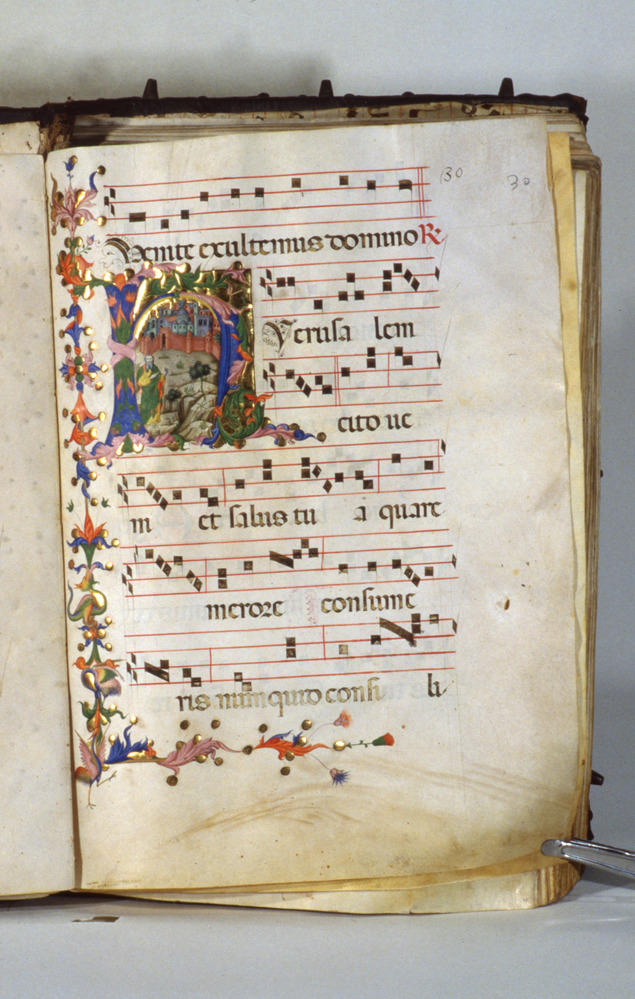 30 30
Venite exultemus domino R
Yerusa lem
cito ue
ni et salus tu a quare
merore consume
ris nunquid consi li